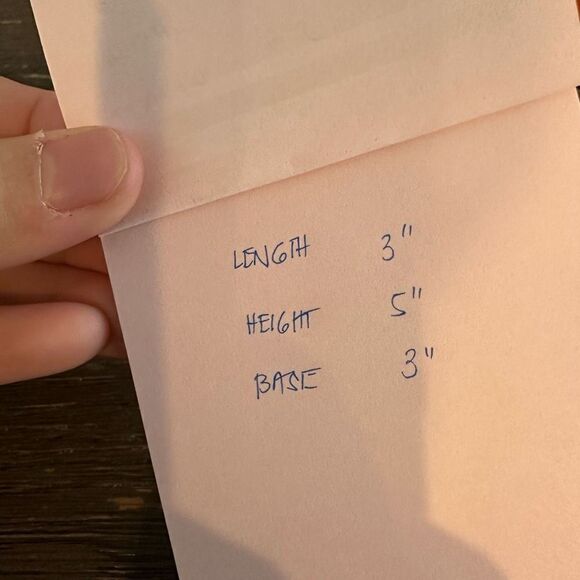 LENGTH 3"
HEIGHT 5"
BASE 3"